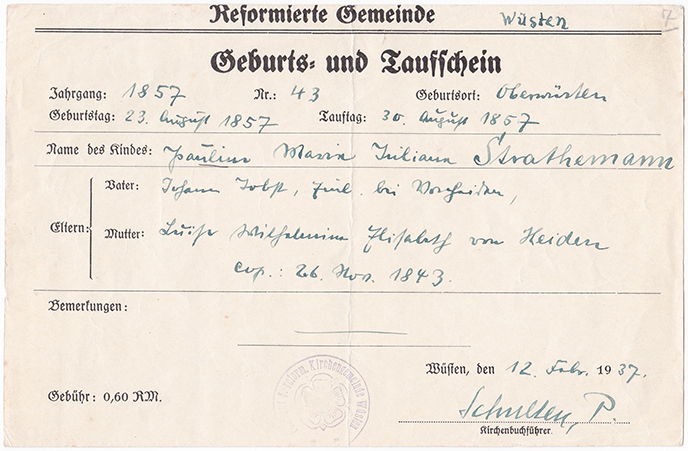 Reformierte Gemeinde Wüsten
7
Geburts- und Taufschein
Jahrgang: 1857 Nr.: 43 Geburtsort: Oberwüsten
Geburtstag: 23. August 1857 Tauftag: 30. August 1857
Name des Kindes: Pauline Marie Juliane Strathemann
Eltern:
Vater: Johann Jobst, Einl. bei
Mutter: Luise Wilhelmine Elisabeth von Heiden
cop.: 26. Nov. 1843.
Bemerkungen:
Wüsten, den 12. Febr. 1937.
Gebühr: 0,60 RM.
Schulten, P.
Kirchenbuchführer.
reform. Kirchengemeinde Wüsten